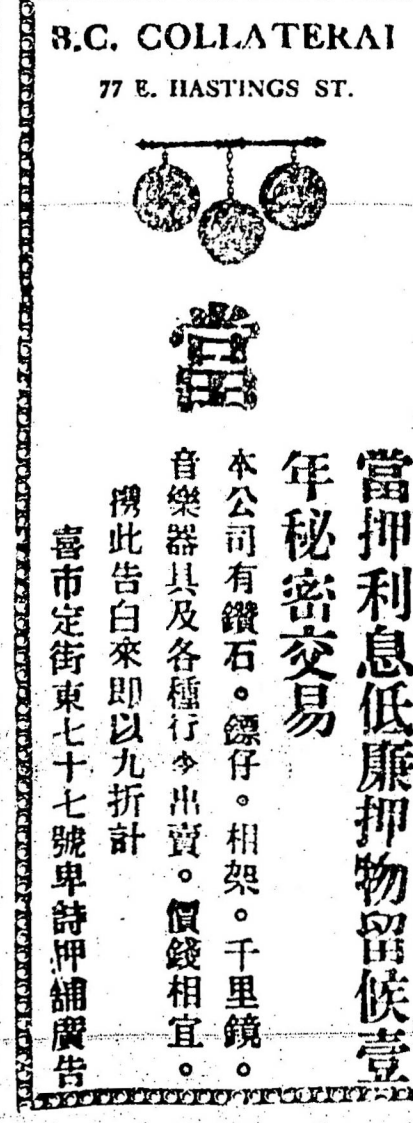 B.C. COLLATERAL
77 E. HASTINGS ST.
當
當押利息低廉押物留候壹
年秘密交易
本公司有鑽石。鏢仔。相架。千里鏡。
音樂器具及各種行李出賣。價錢相宜。
攜此告白來即以九折計
喜市定街東七十七號卑詩押舖廣告